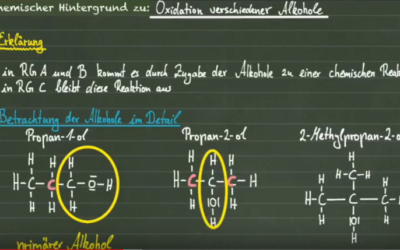 hemischer Hintergrund zu: Oxidation verschiedener Alkohole
Erklärung
in RG A und B kommt es durch Zugabe der Alkohole zu einer chemischen Reak
in RG C bleibt diese Reaktion aus
Betrachtung der Alkohole im Detail
Propan-1-ol Propan-2-ol 2-Methylpropan-2-o
H H H H H H H
H-C-C-C-O-H H-C-C-C-H H-C-H
H H H H IOI H H H
H H-C-C-C-H
H IOI H
H
primärer Alkohol